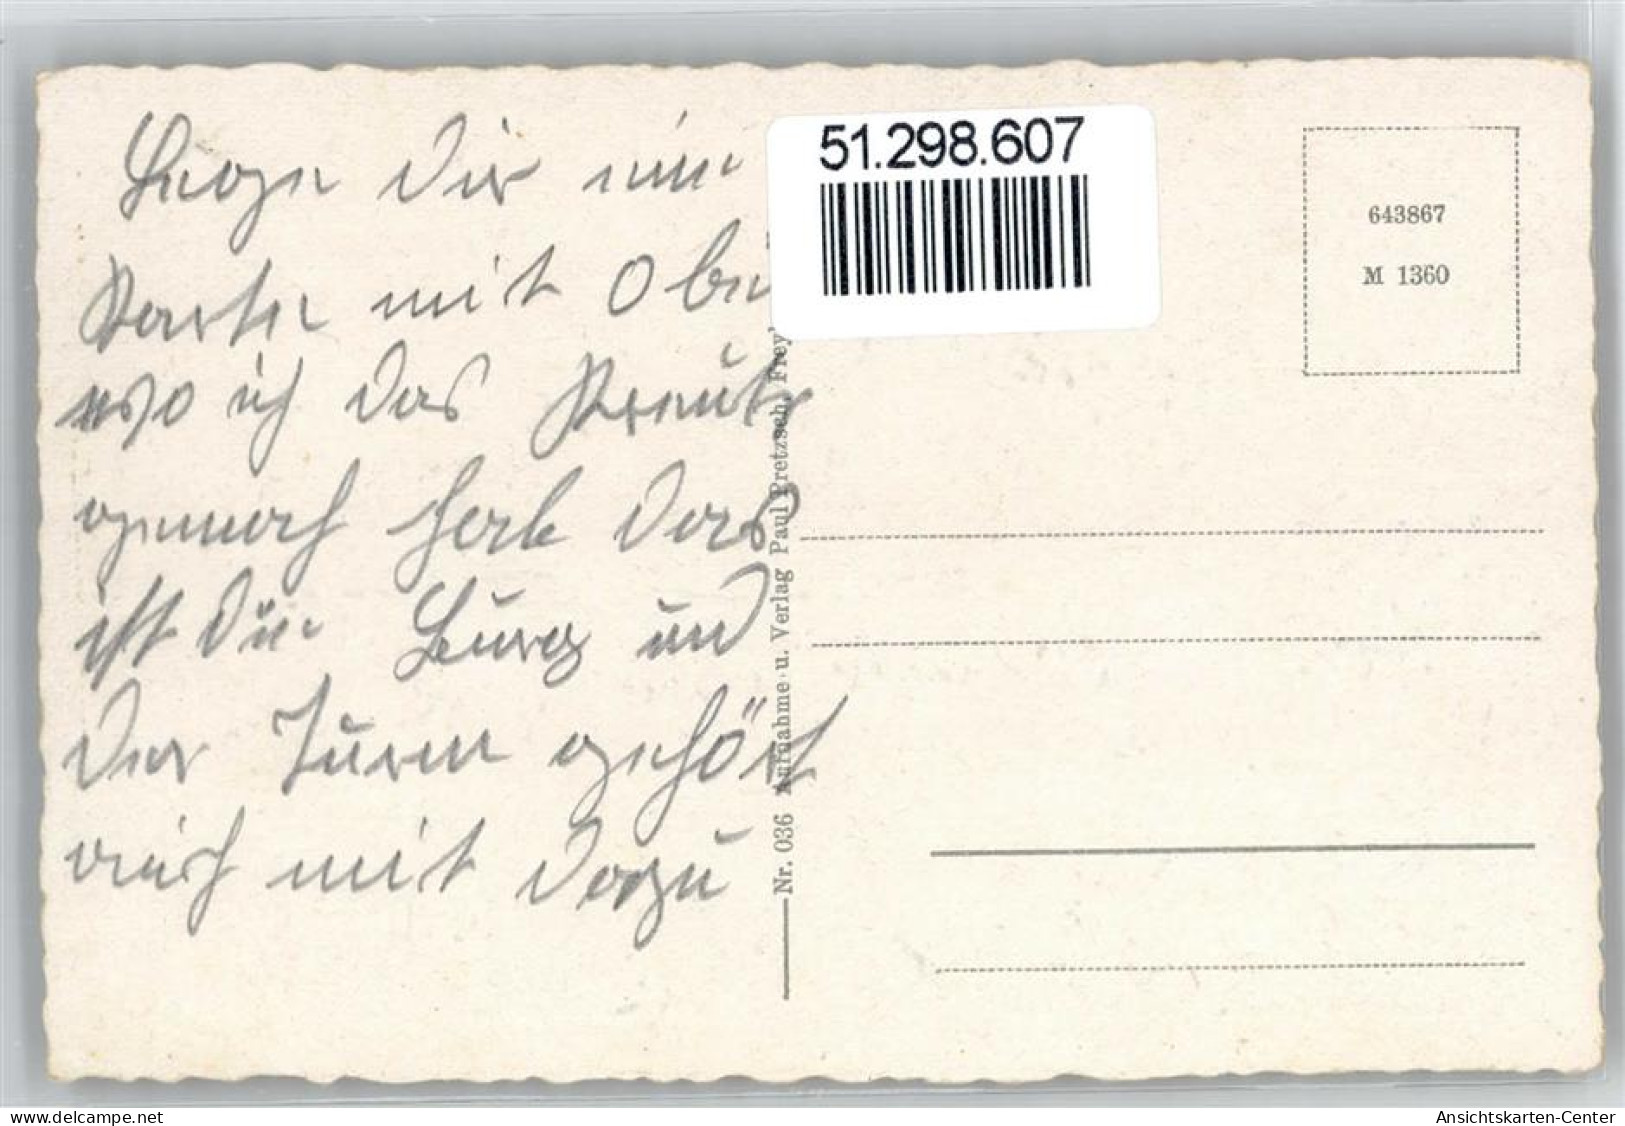 Lege Dir eine
Karte mit Oben
wo ich das Kreutz
gemach hab das
ist die Burg und
der Turm gehört
auch mit dazu
51.298.607
643867
M 1360
Nr. 036 Aufnahme u. Verlag Paul Pretzsch, Frey
delcampe.net
Ansichtskarten-Center